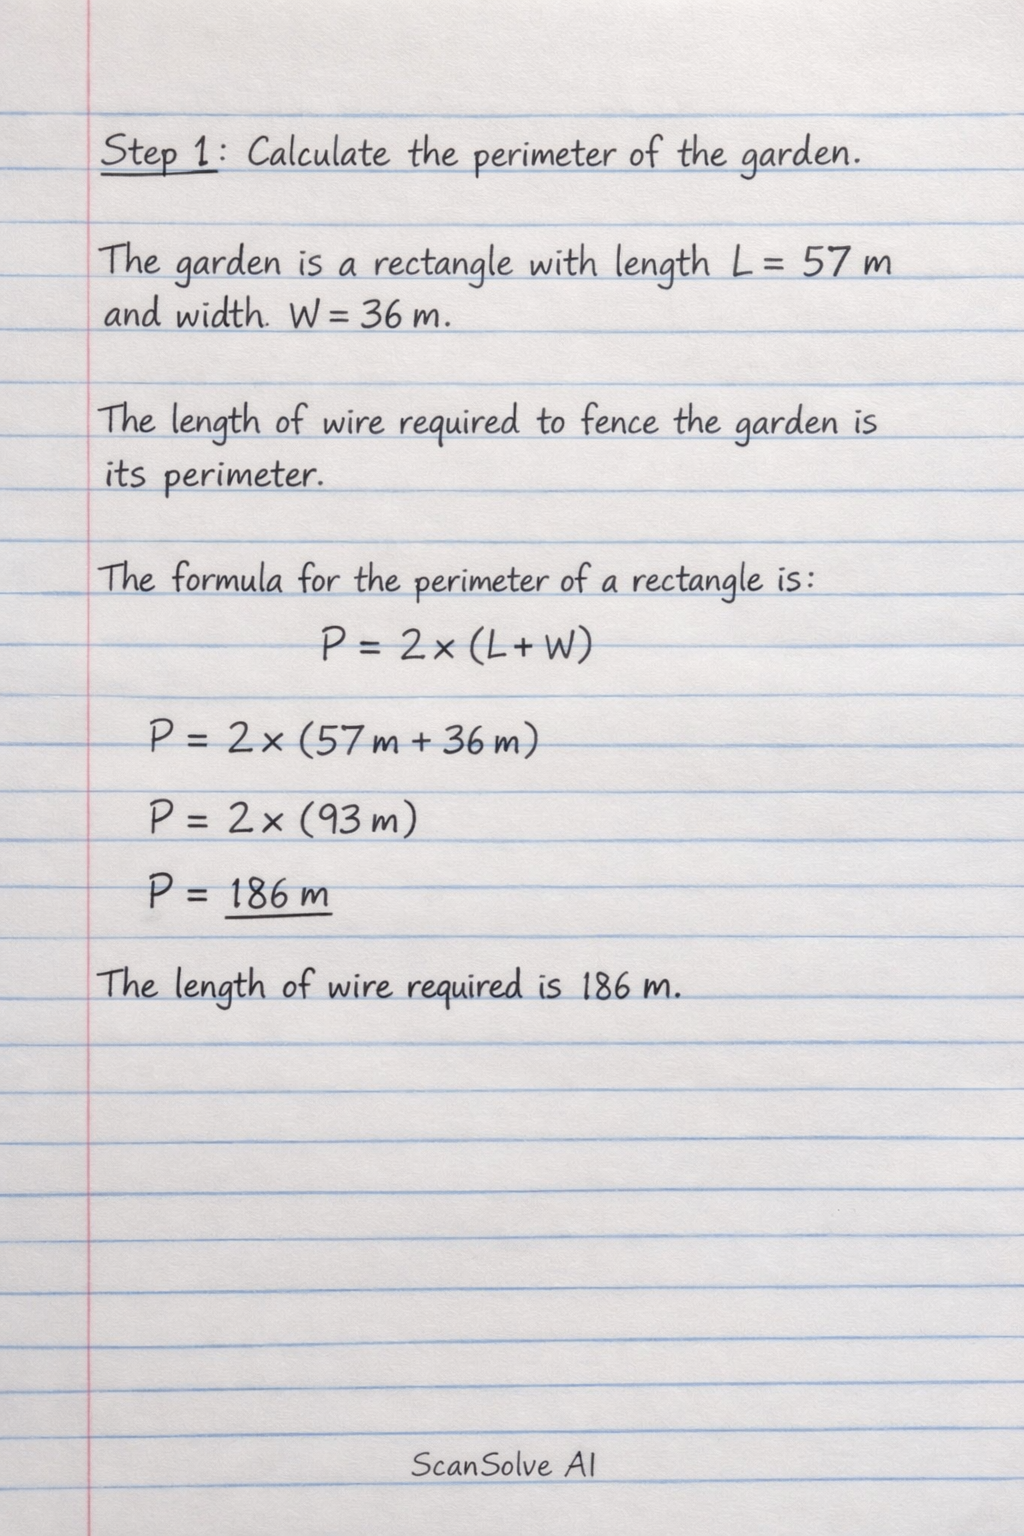 Step 1: Calculate the perimeter of the garden.
The garden is a rectangle with length L = 57 m
and width. W = 36 m.
The length of wire required to fence the garden is
its perimeter.
The formula for the perimeter of a rectangle is:
P = 2 × (L + W)
P = 2 × (57 m + 36 m)
P = 2 × (93 m)
P = 186 m
The length of wire required is 186 m.
ScanSolve AI